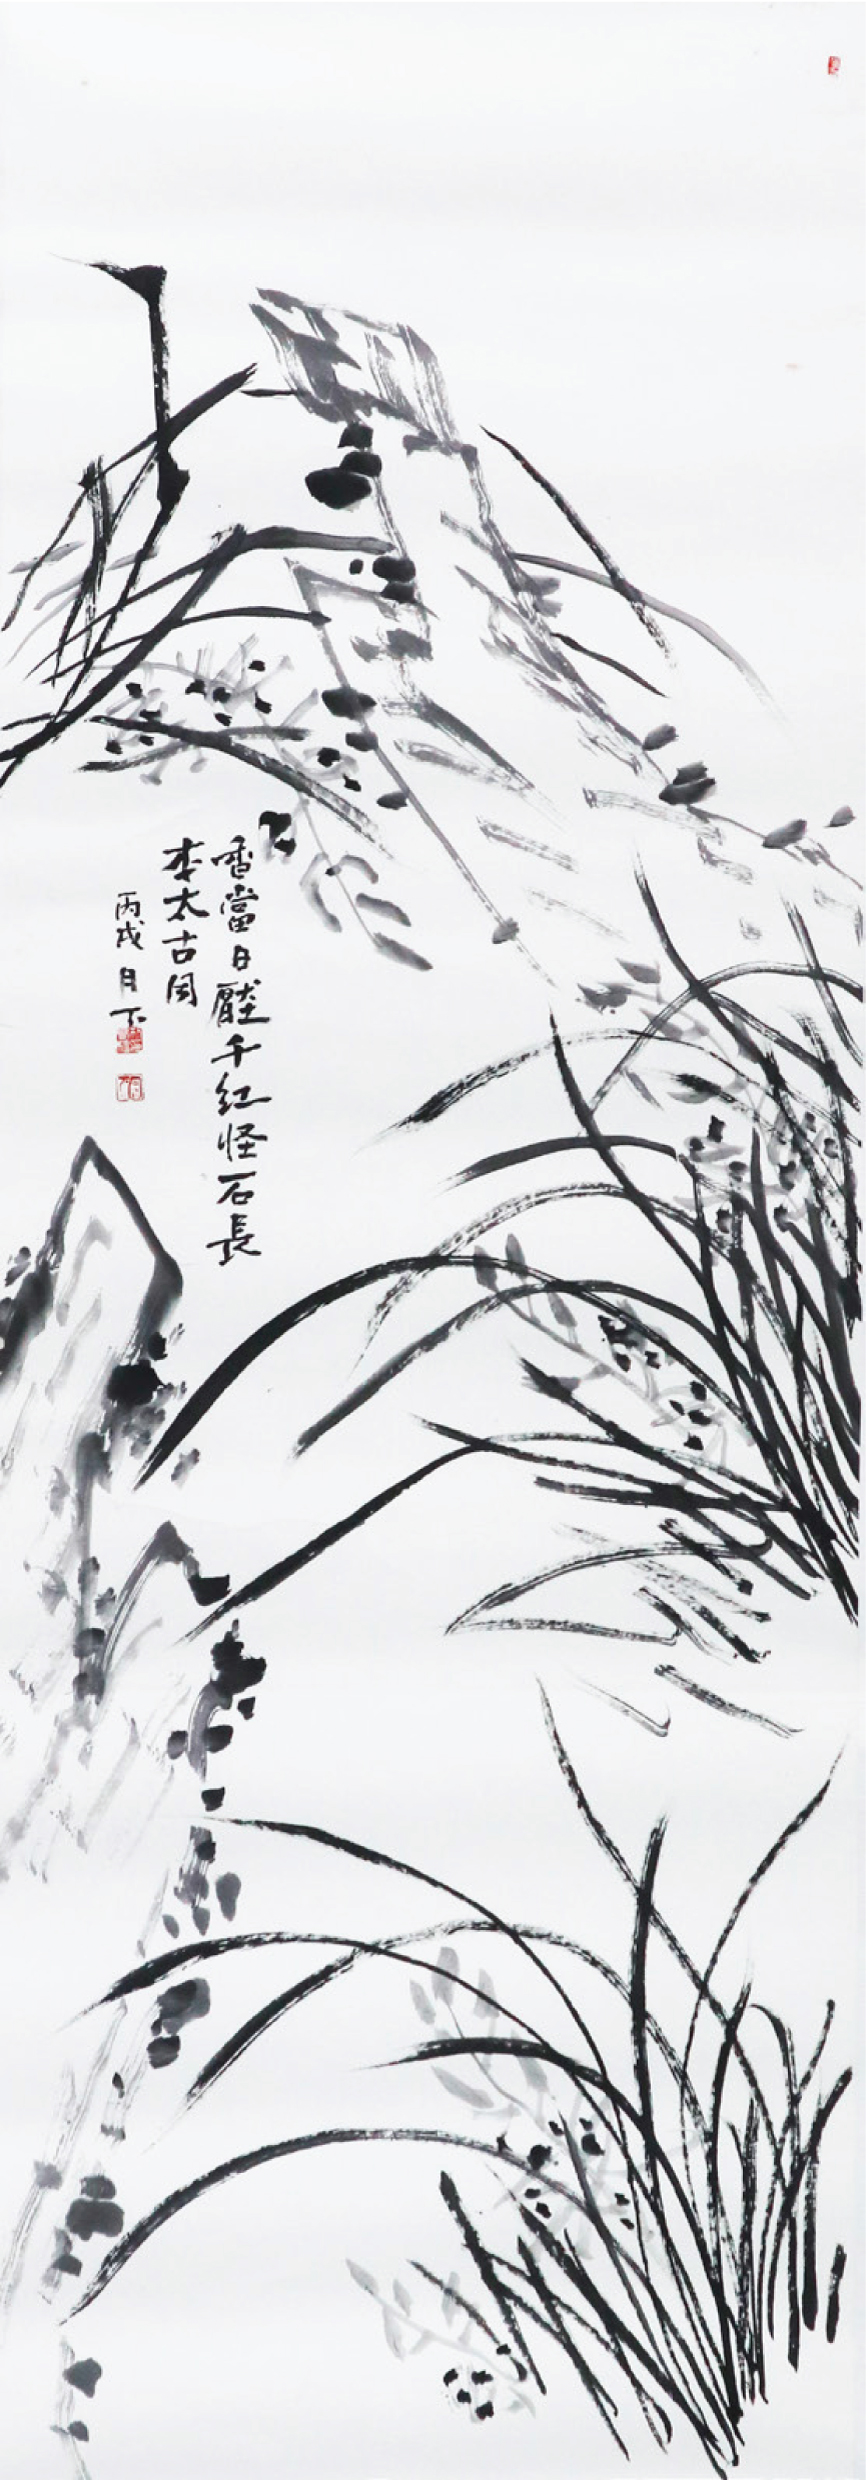 香當日壓千紅怪石長
李太古同
丙戌月下